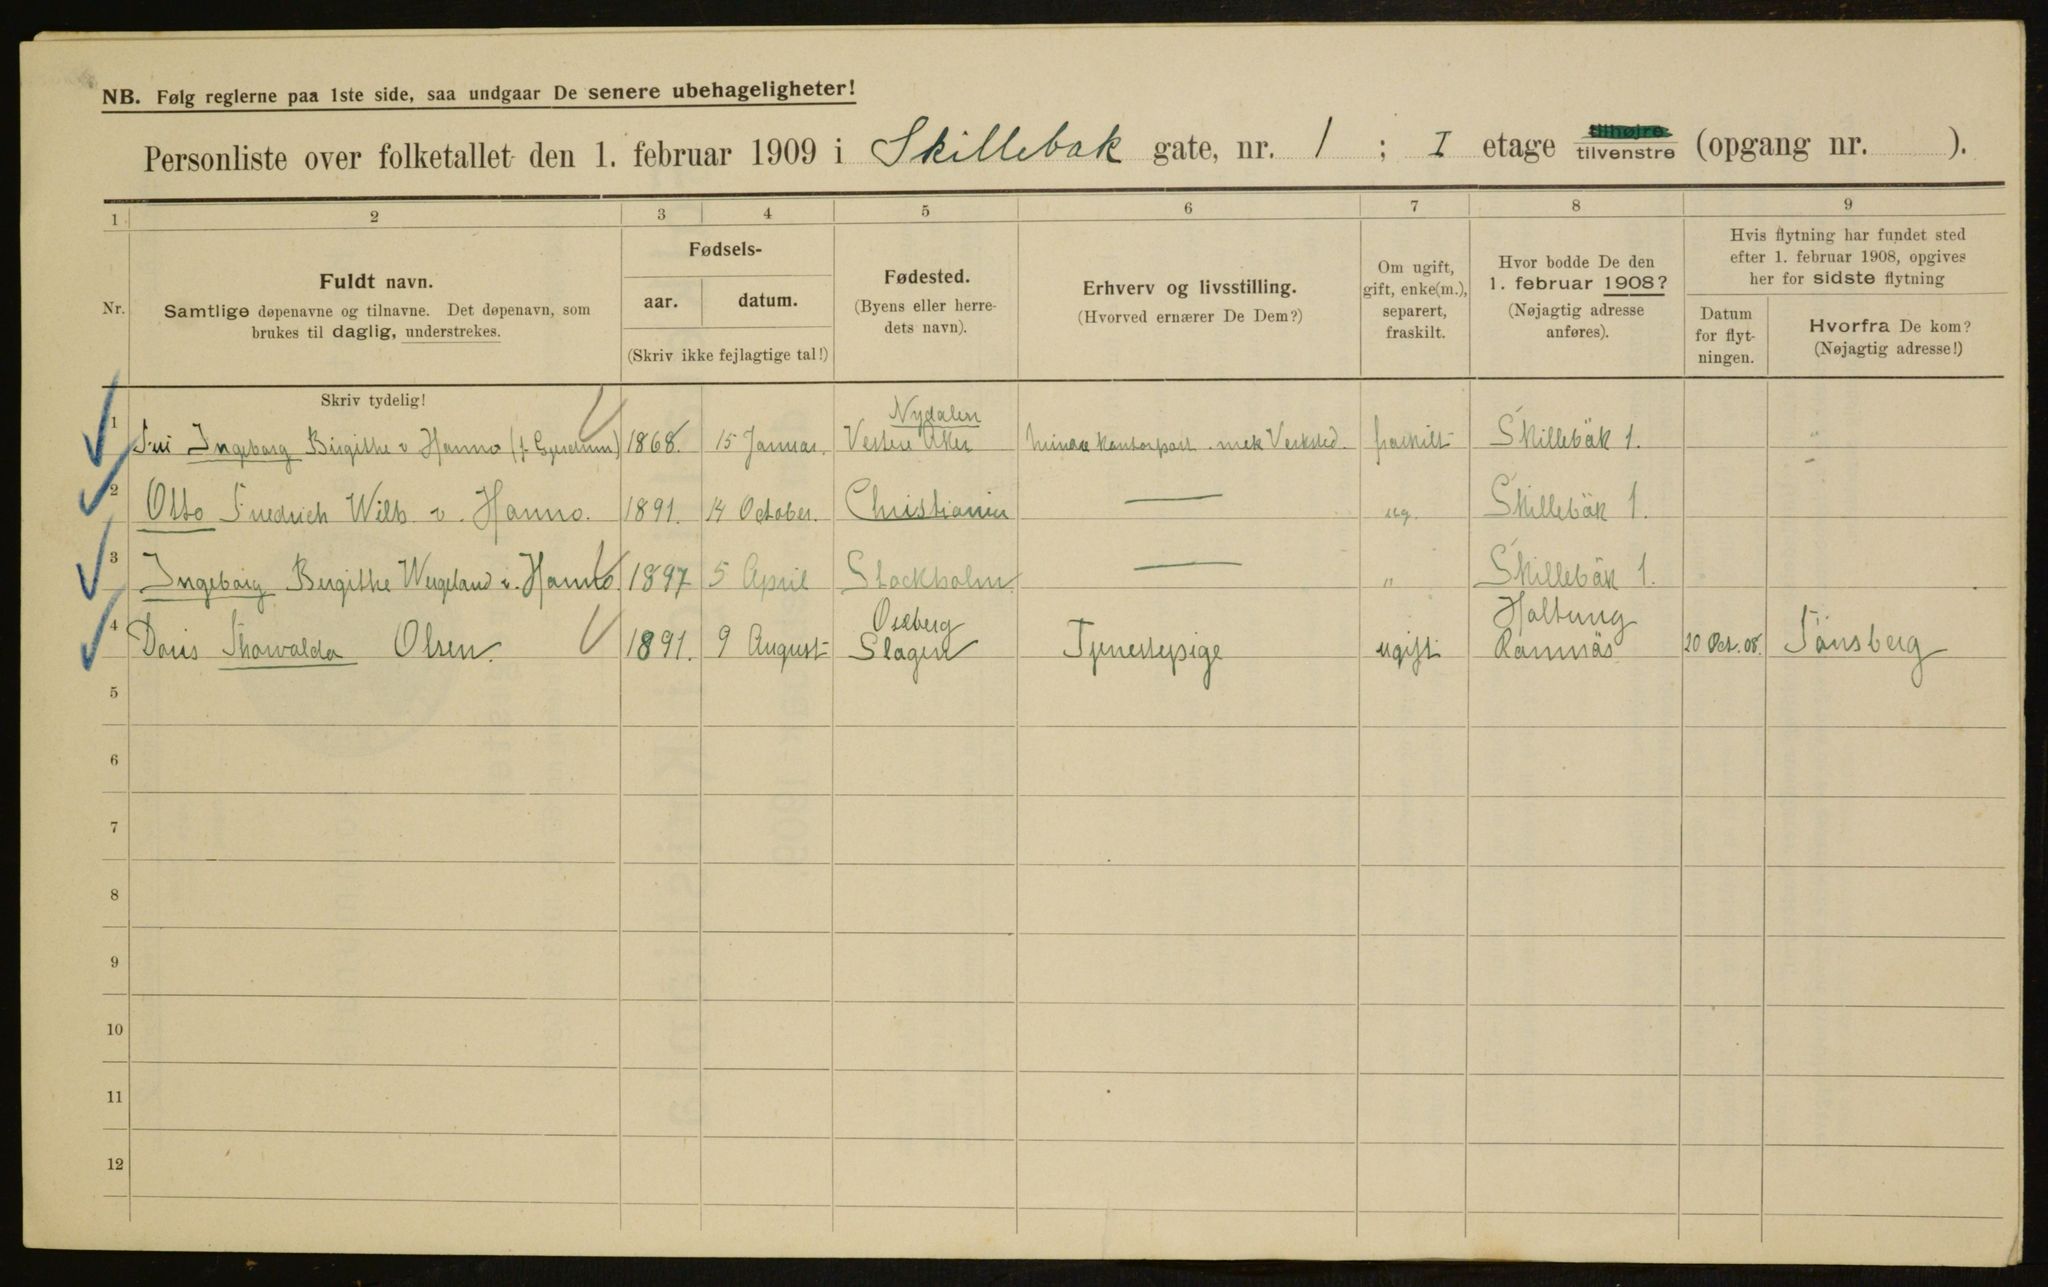 NB. Følg reglerne paa 1ste side, saa undgaar De senere ubehageligheter!
Personliste over folketallet den 1. februar 1909 i Skillebæk gate, nr. 1 ; I etage tilhøjre tilvenstre (opgang nr. ).
1 2 3 4 5 6 7 8 9
Nr.
Fuldt navn.
Samtlige døpenavne og tilnavne. Det døpenavn, som
brukes til daglig, understrekes.
Fødsels-
aar. datum.
(Skriv ikke fejlagtige tal!)
Fødested.
(Byens eller herre-
dets navn).
Erhverv og livsstilling.
(Hvorved ernærer De Dem?)
Om ugift,
gift, enke(m.),
separert,
fraskilt.
Hvor bodde De den
1. februar 1908?
(Nøjagtig adresse
anføres).
Hvis flytning har fundet sted
efter 1. februar 1908, opgives
her for sidste flytning
Datum
for flyt-
ningen.
Hvorfra De kom?
(Nøjagtig adresse!)
Skriv tydelig!
Nydalen
1 Fru Ingeborg Birgithe v Hanno 1868. 15 Januar. Vestre Aker mindre kontorpost mek Verksted. fraskilt Skillebäk 1.
2 Otto Friedrich Wilh. v. Hanno. 1891. 14 October. Christiania — ug. Skillebäk 1.
3 Ingeborg Birgithe Wergeland v. Hanno. 1897 5 April Stockholm — " Skillebäk 1.
Oseberg Haltung
4 Doris Thorvalda Olsen. 1891. 9 August Slagen Tjenestepige ugift Ramnäs 20 Oct. 08. Tönsberg
5
6
7
8
9
10
11
12